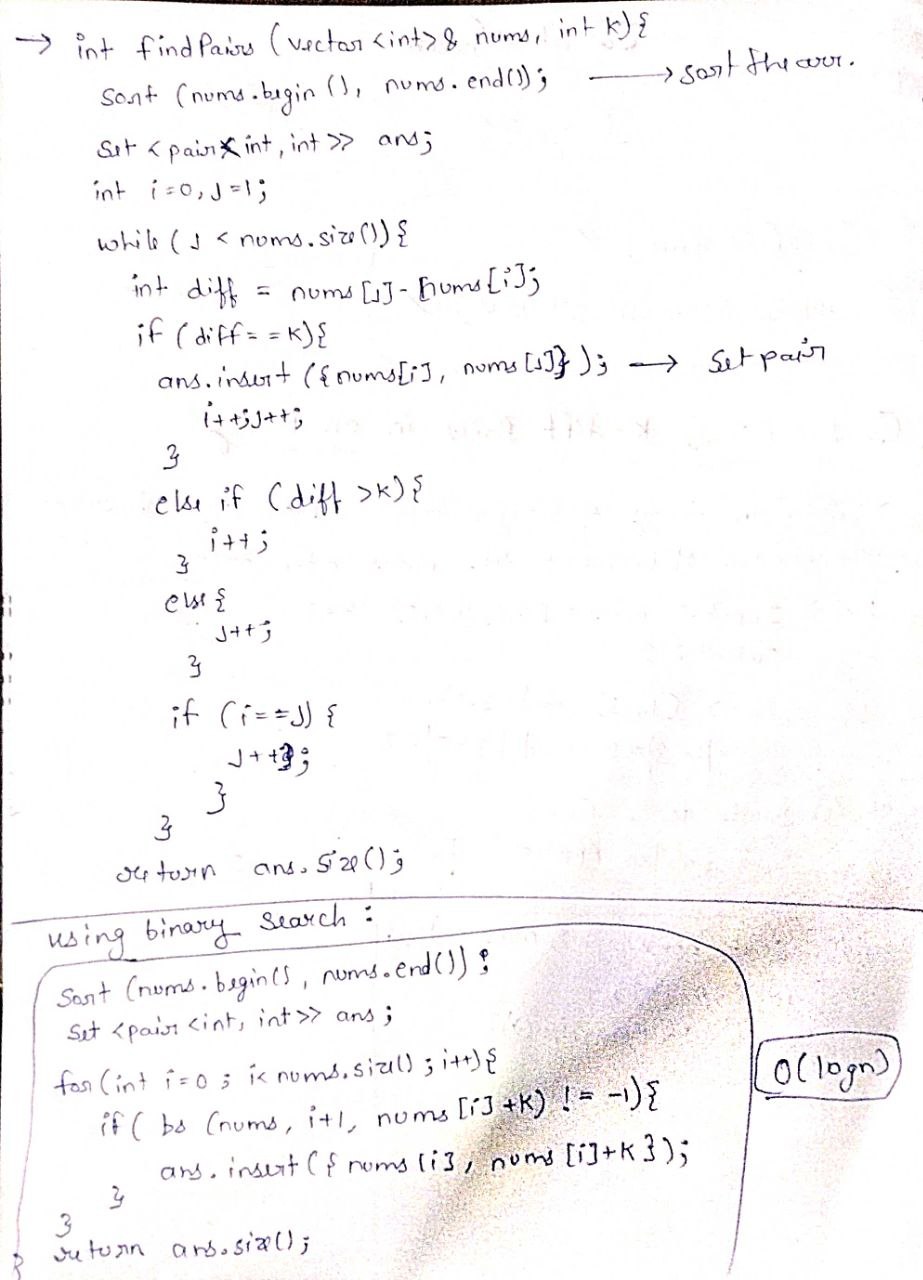 → int findPairs (vector <int>& nums, int k){
sort (nums.begin (), nums.end()); → sort the arr.
Set < pair<int, int >> ans;
int i=0, J=1;
while ( J < nums.size()) {
int diff = nums [J] - nums [i];
if (diff == k){
ans.insert ({nums[i], nums [J]}); → Set pair
i++;J++;
}
else if (diff >k) {
i++;
}
else {
J++;
}
if (i==J) {
J++;
}
}
return ans.size();
using binary Search :
Sort (nums.begin(), nums.end()) ;
Set <pair <int, int >> ans ;
for (int i=0 ; i< nums.size() ; i++) {
O(logn)
if ( bs (nums, i+1, nums [i] +k) != -1) {
ans. insert ({ nums [i], nums [i]+k });
}
}
return ans.size();